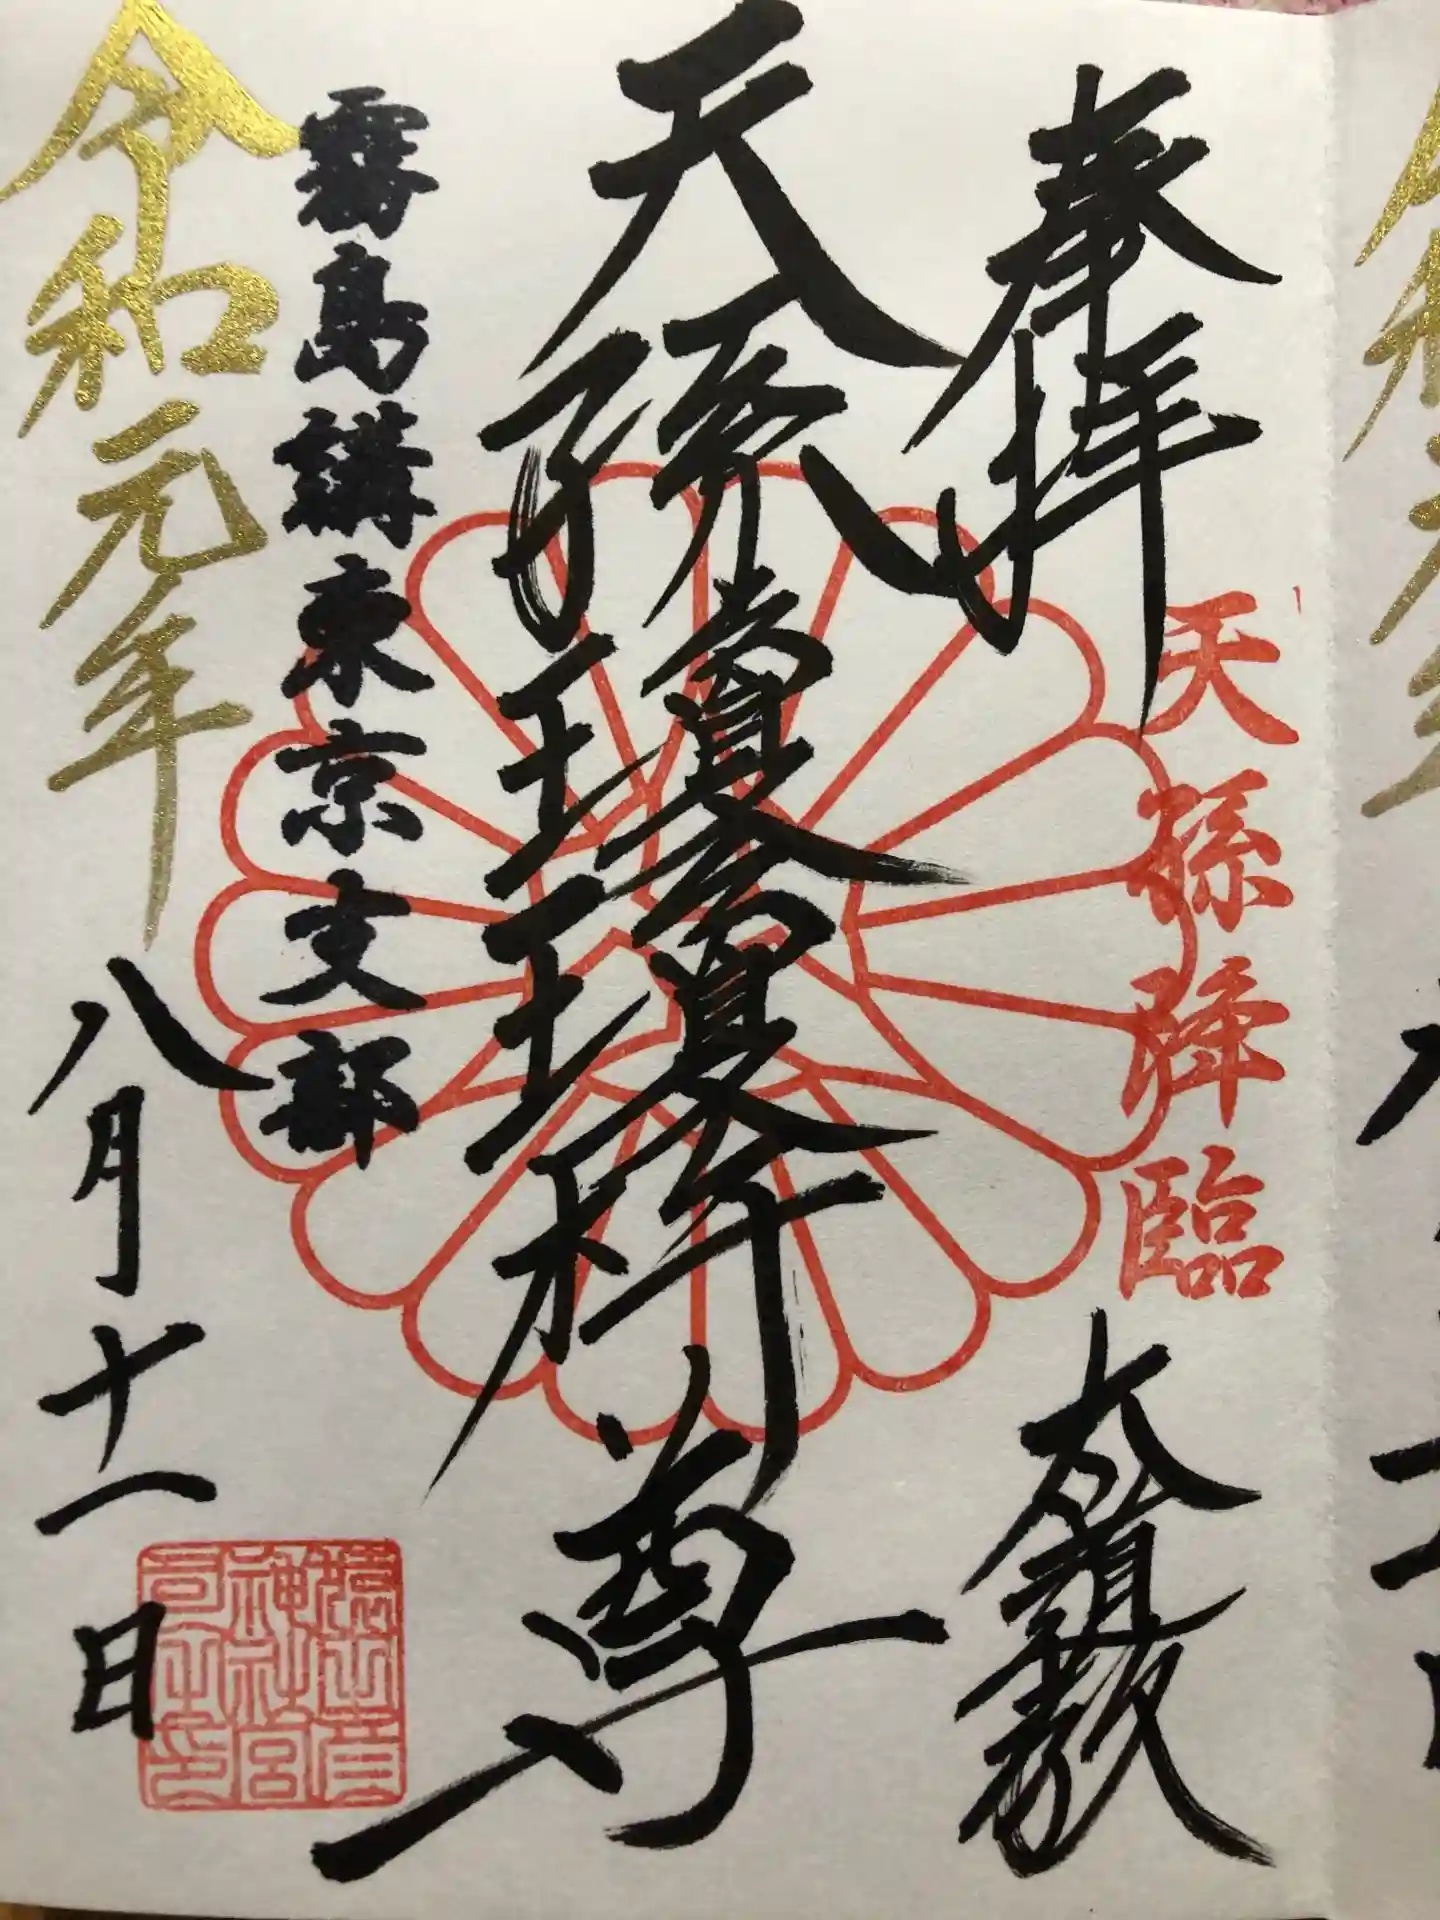 奉拝
天孫降臨
天孫瓊瓊杵尊
霧島講東京支部
令和元年八月十一日
神社宮
司之印